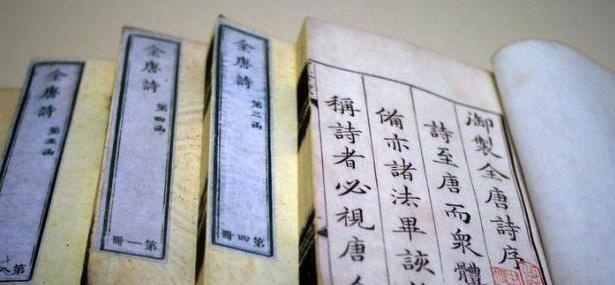 御製全唐詩序
詩至唐而衆體
備亦諸法畢該
稱詩者必視唐
全唐詩
第三函
第四冊
全唐詩
第四函
第一冊
全唐詩
第五函